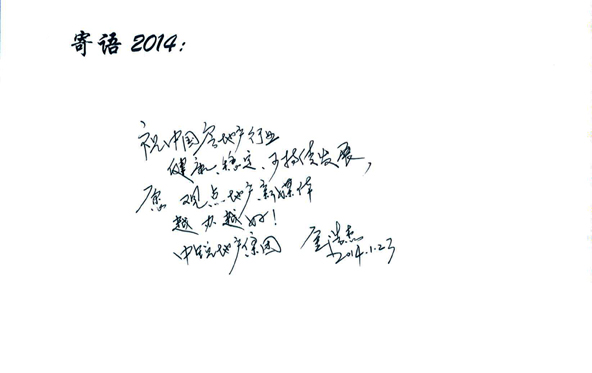 寄语 2014：
祝中国房地产行业
健康、稳定、可持续发展，
愿 观点地产新媒体
越办越好！
中 地产集团 浩杰
2014.1.23